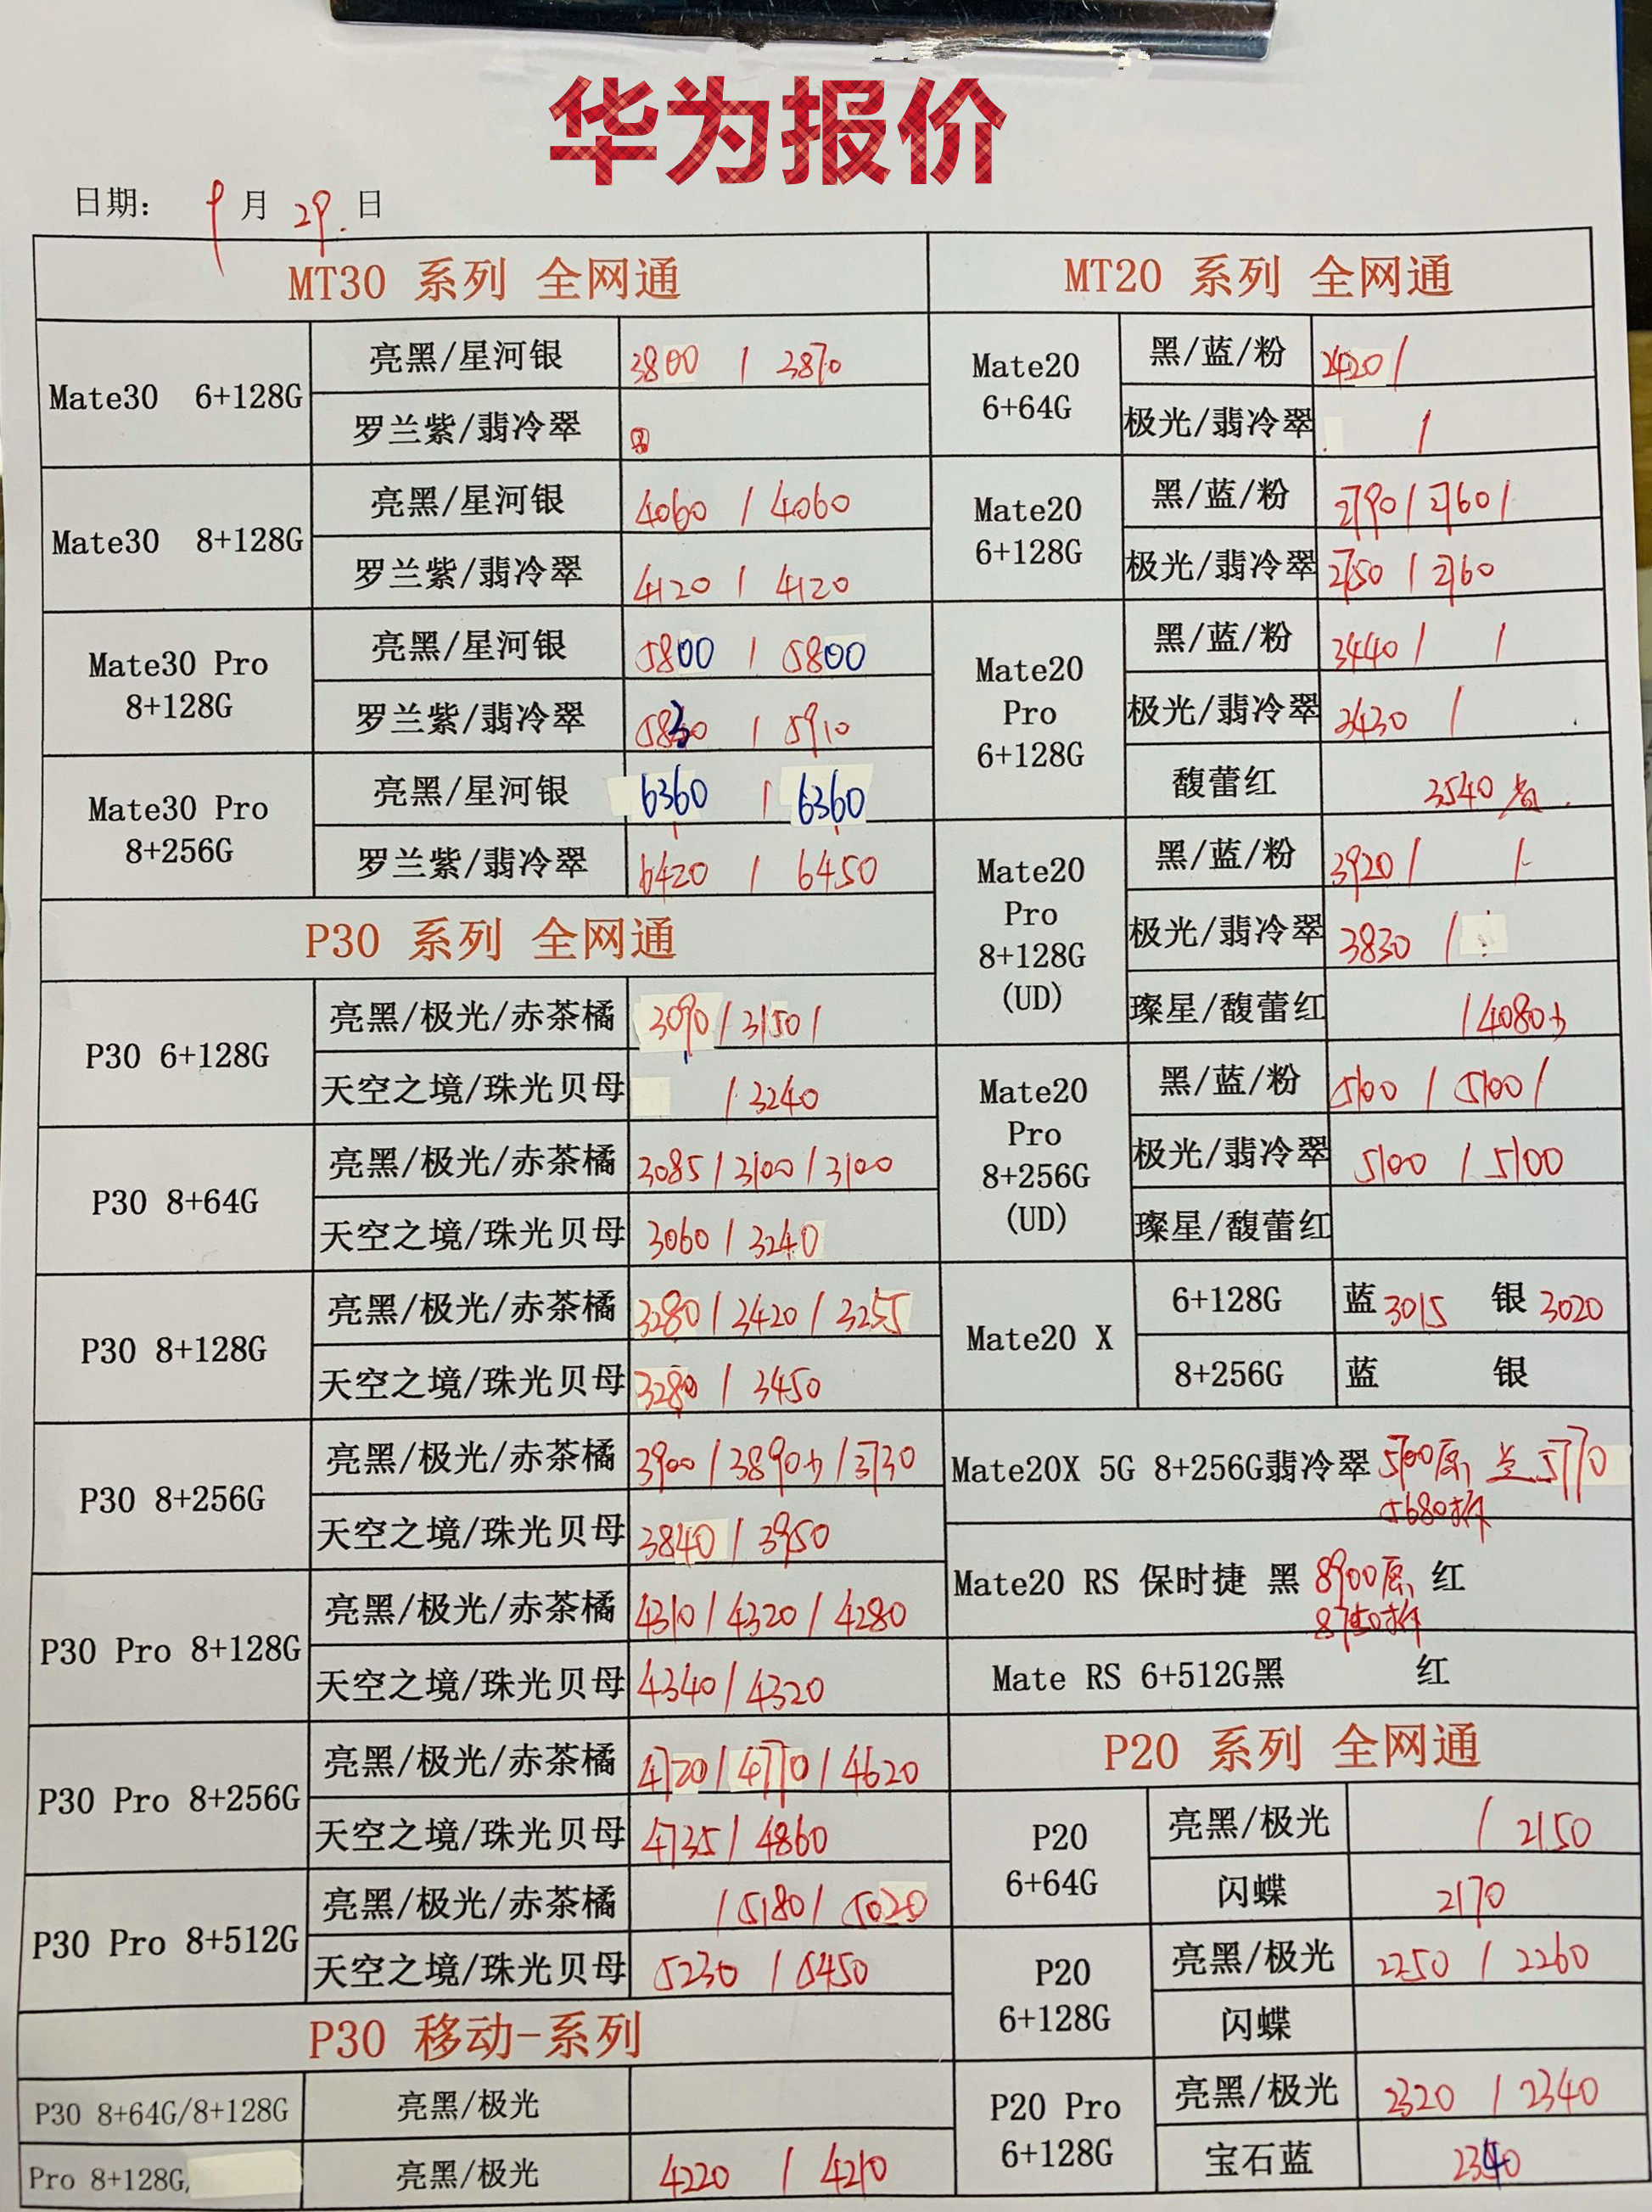 华为报价
日期: 9月29.日
MT30 系列 全网通
Mate30 6+128G
亮黑/星河银 3800 / 3870
罗兰紫/翡冷翠
Mate30 8+128G
亮黑/星河银 4060 / 4060
罗兰紫/翡冷翠 4120 / 4120
Mate30 Pro
8+128G
亮黑/星河银 5800 / 5800
罗兰紫/翡冷翠 5830 / 5910
Mate30 Pro
8+256G
亮黑/星河银 6360 / 6360
罗兰紫/翡冷翠 6420 / 6450
P30 系列 全网通
P30 6+128G
亮黑/极光/赤茶橘 3090 / 3150 /
天空之境/珠光贝母 / 3240
P30 8+64G
亮黑/极光/赤茶橘 3085 / 3100 / 3100
天空之境/珠光贝母 3060 / 3240
P30 8+128G
亮黑/极光/赤茶橘 3280 / 3420 / 3255
天空之境/珠光贝母 3280 / 3450
P30 8+256G
亮黑/极光/赤茶橘 3900 / 3890少 / 3730
天空之境/珠光贝母 3840 / 3950
P30 Pro 8+128G
亮黑/极光/赤茶橘 4310 / 4320 / 4280
天空之境/珠光贝母 4340 / 4320
P30 Pro 8+256G
亮黑/极光/赤茶橘 4720 / 4770 / 4620
天空之境/珠光贝母 4735 / 4860
P30 Pro 8+512G
亮黑/极光/赤茶橘 / 5180 / 5020
天空之境/珠光贝母 5230 / 5450
P30 移动-系列
P30 8+64G/8+128G 亮黑/极光
Pro 8+128G/ 亮黑/极光 4220 / 4210
MT20 系列 全网通
Mate20
6+64G
黑/蓝/粉 2420 /
极光/翡冷翠 /
Mate20
6+128G
黑/蓝/粉 2790 / 2760 /
极光/翡冷翠 2750 / 2760
Mate20
Pro
6+128G
黑/蓝/粉 3440 / /
极光/翡冷翠 3430 /
馥蕾红 3540
Mate20
Pro
8+128G
(UD)
黑/蓝/粉 3920 / /
极光/翡冷翠 3830 /
璨星/馥蕾红 / 4080少
Mate20
Pro
8+256G
(UD)
黑/蓝/粉 5100 / 5100 /
极光/翡冷翠 5100 / 5100
璨星/馥蕾红
Mate20 X
6+128G 蓝 3015 银 3020
8+256G 蓝 银
Mate20X 5G 8+256G翡冷翠 5700原, 5770
5680拆
Mate20 RS 保时捷 黑 8900原, 红
8750拆
Mate RS 6+512G黑 红
P20 系列 全网通
P20
6+64G
亮黑/极光 / 2150
闪蝶 2170
P20
6+128G
亮黑/极光 2250 / 2260
闪蝶
P20 Pro
6+128G
亮黑/极光 2320 / 2340
宝石蓝 2340